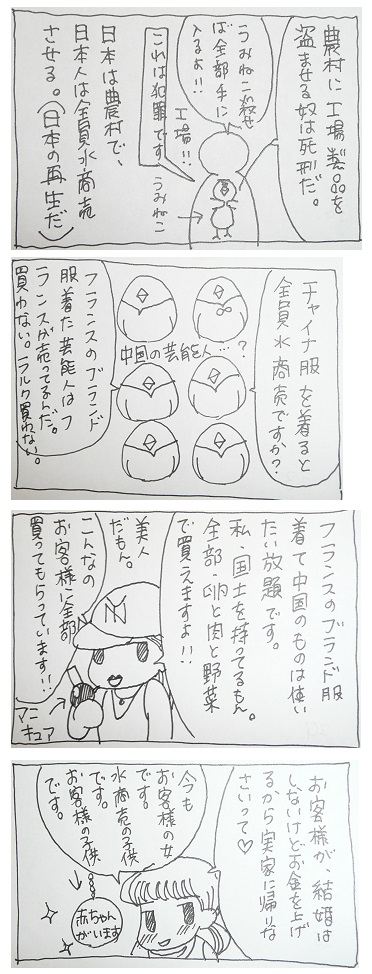 農村に工場製品を
盗ませる奴は死刑だ。
うみねこ殺せ
ば全部手に
入るよ!!
工場!!
うみねこ
これは犯罪です
日本は農村で、
日本人は全員水商売
させる。(日本の再生だ)
チャイナ服を着ると
全員水商売ですか?
中国の芸能人…?
フランスのブランド
服着た芸能人はフ
ランスが売ってるんだ。
買わない。ーつしか買わない。
フランスのブランド服
着て中国のものは使い
たい放題です。
私、国土を持ってるもん。
全部、卵と肉と野菜
で買えますよ!!
美人
だもん。
こんなの
お客様に全部
買ってもらっています!!
NY
マニ
キュア
お客様が、結婚は
しないけどお金を上げ
るから実家に帰りな
さいって♡
今も
お客様の女
です。
水商売の子供
です。
お客様の子供
です。
赤ちゃん
がいます